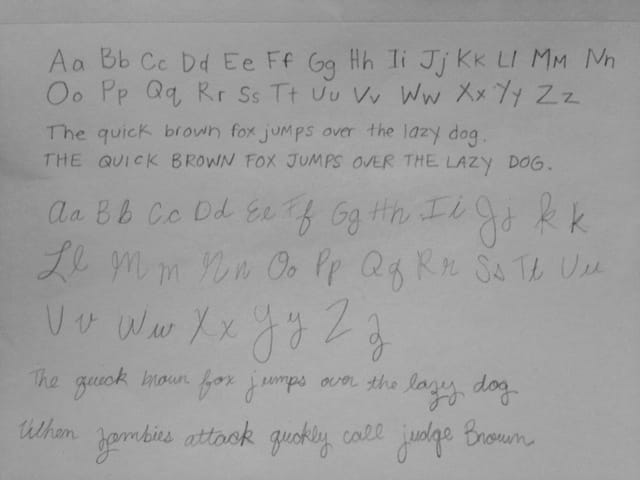 Aa Bb Cc Dd Ee Ff Gg Hh Ii Jj Kk Ll Mm Nn
Oo Pp Qq Rr Ss Tt Uu Vv Ww Xx Yy Zz
The quick brown fox jumps over the lazy dog.
THE QUICK BROWN FOX JUMPS OVER THE LAZY DOG.
Aa Bb Cc Dd Ee Ff Gg Hh Ii Jj Kk
Ll Mm Nn Oo Pp Qq Rr Ss Tt Uu
Vv Ww Xx Yy Zz
The quick brown fox jumps over the lazy dog
When zombies attack quckly call judge Brown